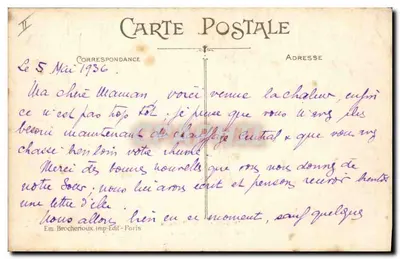 II
CARTE POSTALE
CORRESPONDANCE
ADRESSE
Le 5 Mai 1936.
Ma chère Maman, voici venue la chaleur, enfin
ce n'est pas trop tôt, je pense que vous n'avez plus
besoin maintenant de chauffage central & que vous avez
chassé bien loin votre rhume.
Merci des bonnes nouvelles que vous nous donnez de
notre Soeur; nous lui avons écrit et pensons recevoir bientôt
une lettre d'elle.
Nous allons bien en ce moment, sauf quelques
Em. Brocherioux, imp-Edit - Paris